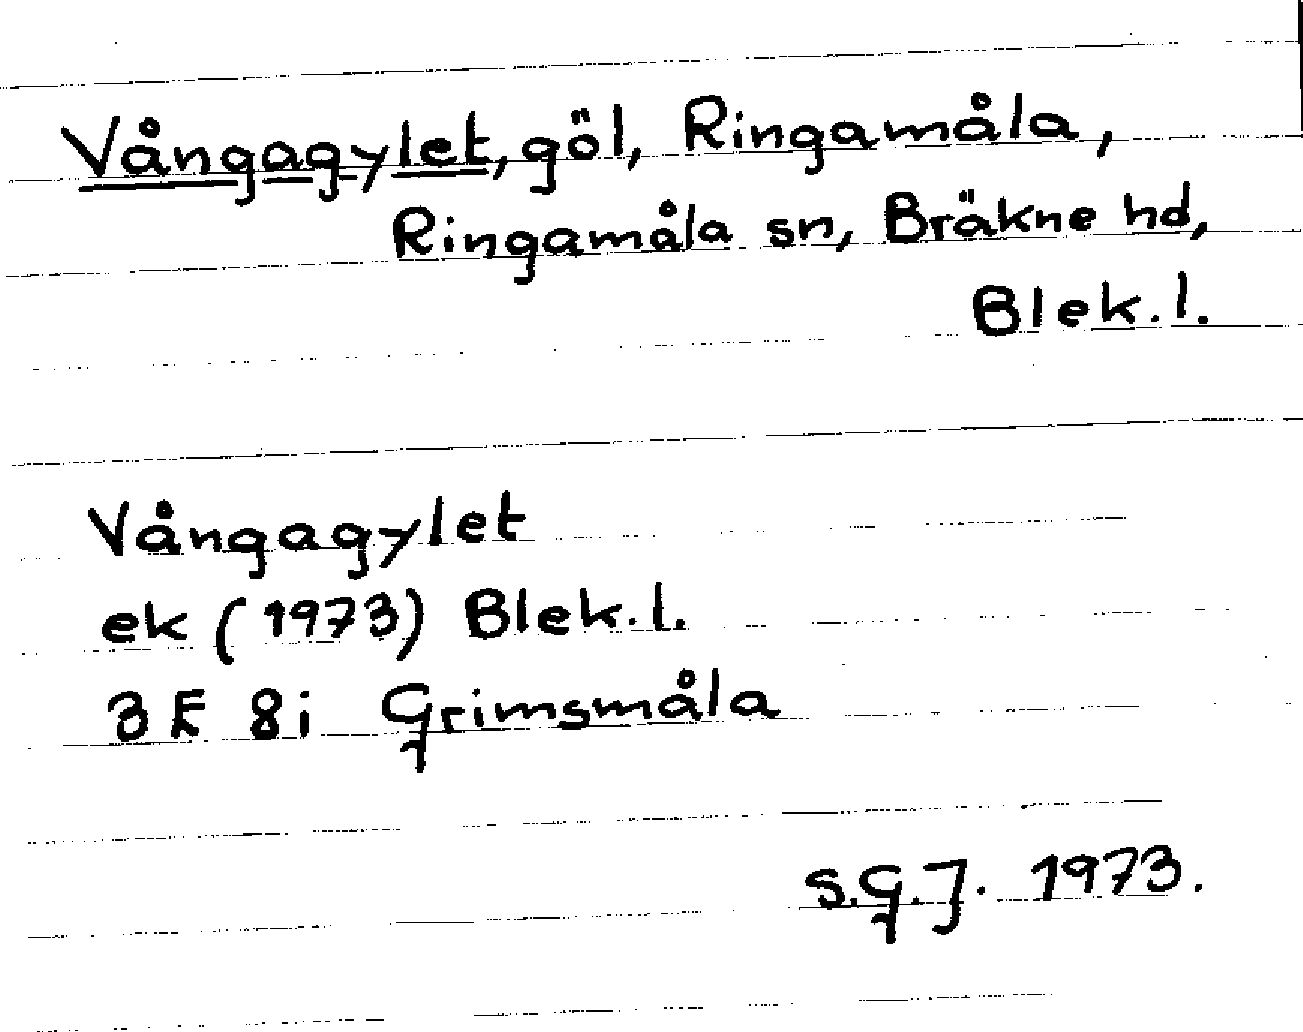 Vångagylet, göl, Ringamåla,
Ringamåla sn, Bräkne hd,
Blek.l.
Vångagylet
ek (1973) Blek.l.
3E 8i Grimsmåla
S.G.J. 1973.